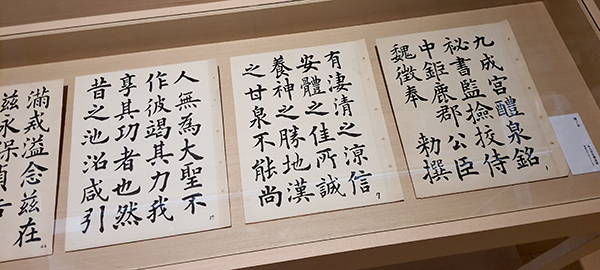 九成宮醴泉銘
祕書監撿挍侍
中鉅鹿郡公臣
魏徵奉 勅撰
有淒清之涼信
安體之佳所誠
養神之勝地漢
之甘泉不能尚
人無為大聖不
作彼竭其力我
享其功者也然
昔之池沼咸引
滿戒溢念茲在
茲永保貞吉